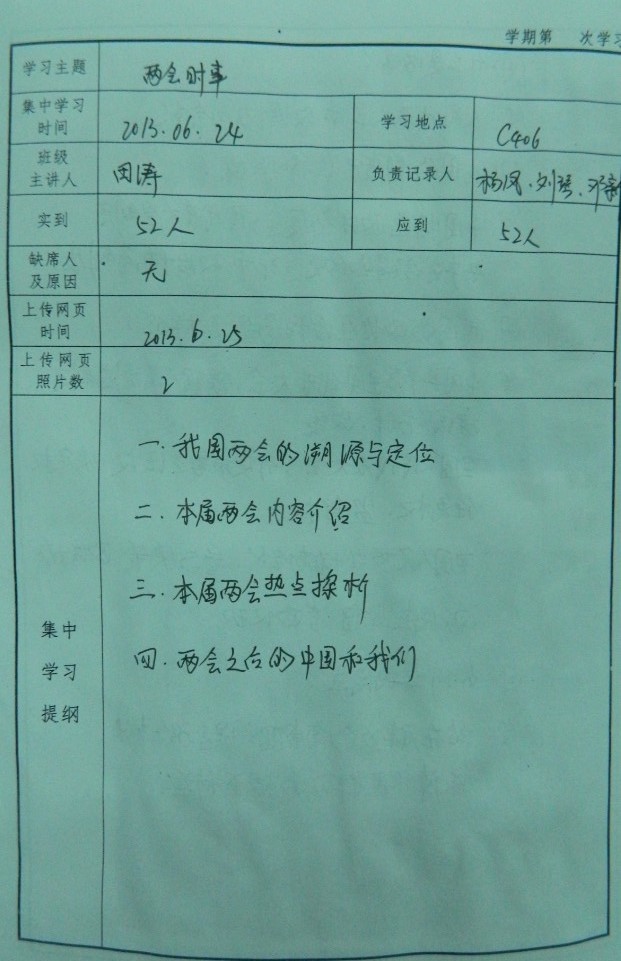 学期第 次学习
学习主题 两会时事
集中学习时间 2013.06.24 学习地点 C406
班级主讲人 田涛 负责记录人 杨凤、刘琴、邓
实到 52人 应到 52人
缺席人及原因 无
上传网页时间 2013.6.25
上传网页照片数 2
集中学习提纲
一.我国两会的溯源与定位
二.本届两会内容介绍
三.本届两会热点探析
四.两会之后的中国和我们